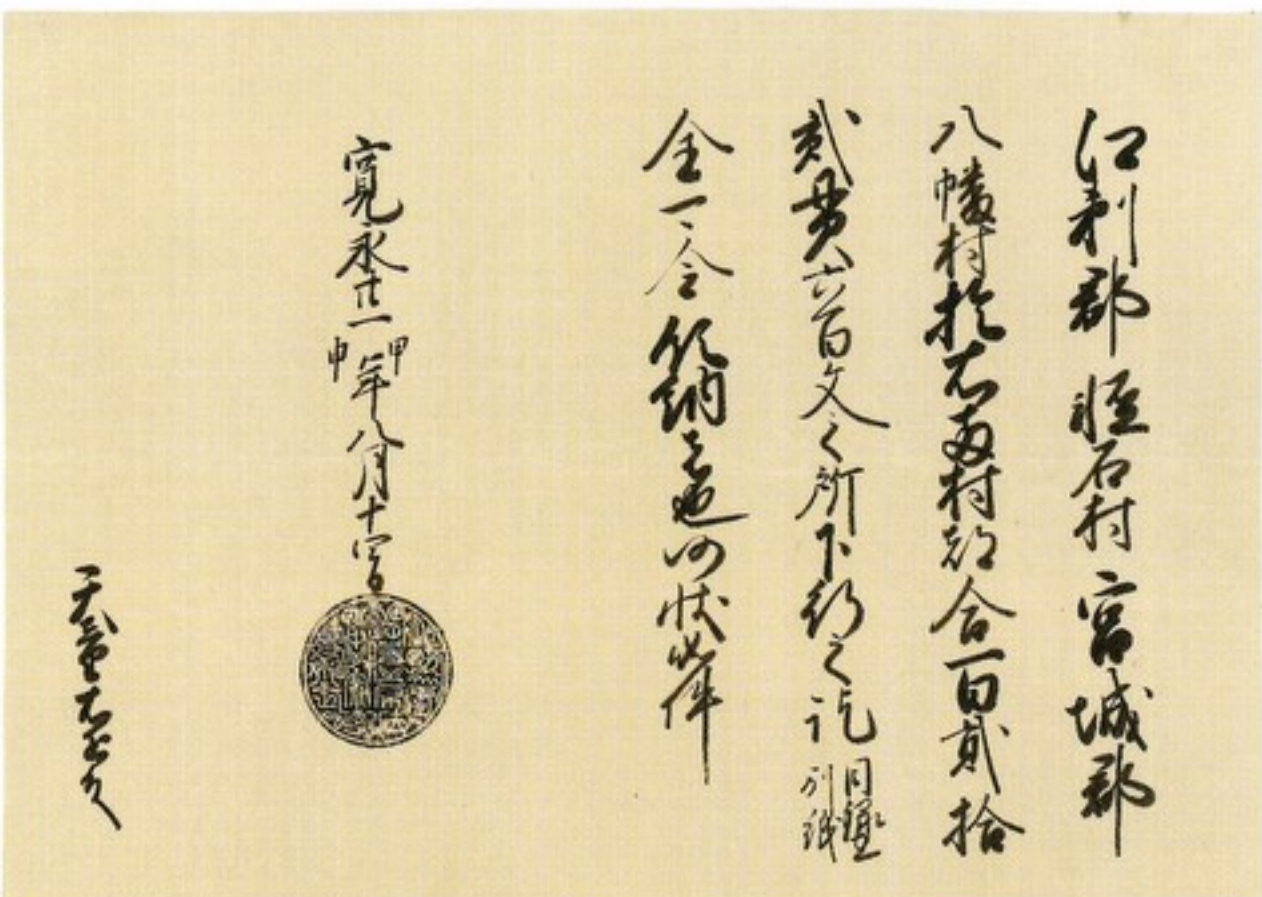 江刺郡軽石村宮城郡
八幡村於右両村都合一百貳拾
貳貫六百文之所下行之訖目録別紙
全可令領納者也仍状如件
寛永廿一年甲申八月十四日
天童右近